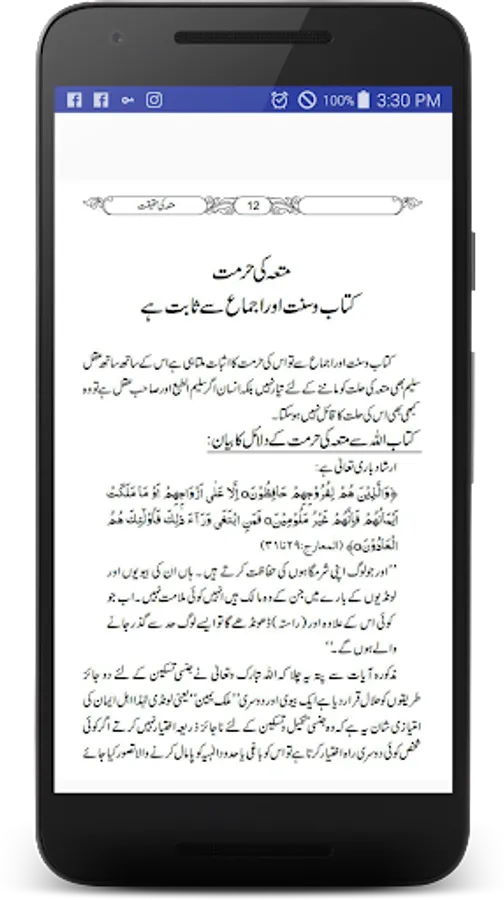 100% 3:30 PM
متعہ کی حقیقت 12
متعہ کی حرمت
کتاب و سنت اور اجماع سے ثابت ہے
کتاب و سنت اور اجماع سے تو اس کی حرمت کا اثبات ملتا ہی ہے اس کے ساتھ ساتھ عقل
سلیم بھی متعہ کی حلت کو ماننے کے لئے تیار نہیں بلکہ انسان اگر سلیم الطبع اور صاحب عقل ہے تو وہ
کبھی بھی اس کی حلت کا قائل نہیں ہو سکتا۔
کتاب اللہ سے متعہ کی حرمت کے دلائل کا بیان:
ارشاد باری تعالیٰ ہے:
﴿وَالَّذِيْنَ هُمْ لِفُرُوْجِهِمْ حَافِظُوْنَo اِلَّا عَلٰى اَزْوَاجِهِمْ اَوْ مَا مَلَكَتْ
اَيْمَانُهُمْ فَاِنَّهُمْ غَيْرُ مَلُوْمِيْنَo فَمَنِ ابْتَغٰى وَرَآءَ ذٰلِكَ فَاُولٰٓئِكَ هُمُ
الْعَادُوْنَo﴾ (المعارج:۲۹تا۳۱)
’’اور جو لوگ اپنی شرمگاہوں کی حفاظت کرتے ہیں۔ ہاں ان کی بیویوں اور
لونڈیوں کے بارے میں جن کے وہ مالک ہیں انہیں کوئی ملامت نہیں۔ اب جو
کوئی اس کے علاوہ اور (راستہ) ڈھونڈھے گا تو ایسے لوگ حد سے گذر جانے
والے ہوں گے۔‘‘
مذکورہ آیات سے پتہ یہ چلا کہ اللہ تبارک وتعالیٰ نے جنسی تسکین کے لئے دو جائز
طریقوں کو حلال قرار دیا ہے ایک بیوی اور دوسری ’’ملک یمین‘‘ یعنی لونڈی لہٰذا اہل ایمان کی
امتیازی شان یہ ہے کہ وہ جنسی تکمیل و تسکین کے لئے ناجائز ذریعہ اختیار نہیں کرتے اگر کوئی
شخص کوئی دوسری راہ اختیار کرتا ہے تو اس کو باغی یا حدود الٰہیہ کو پامال کرنے والا تصور کیا جائے